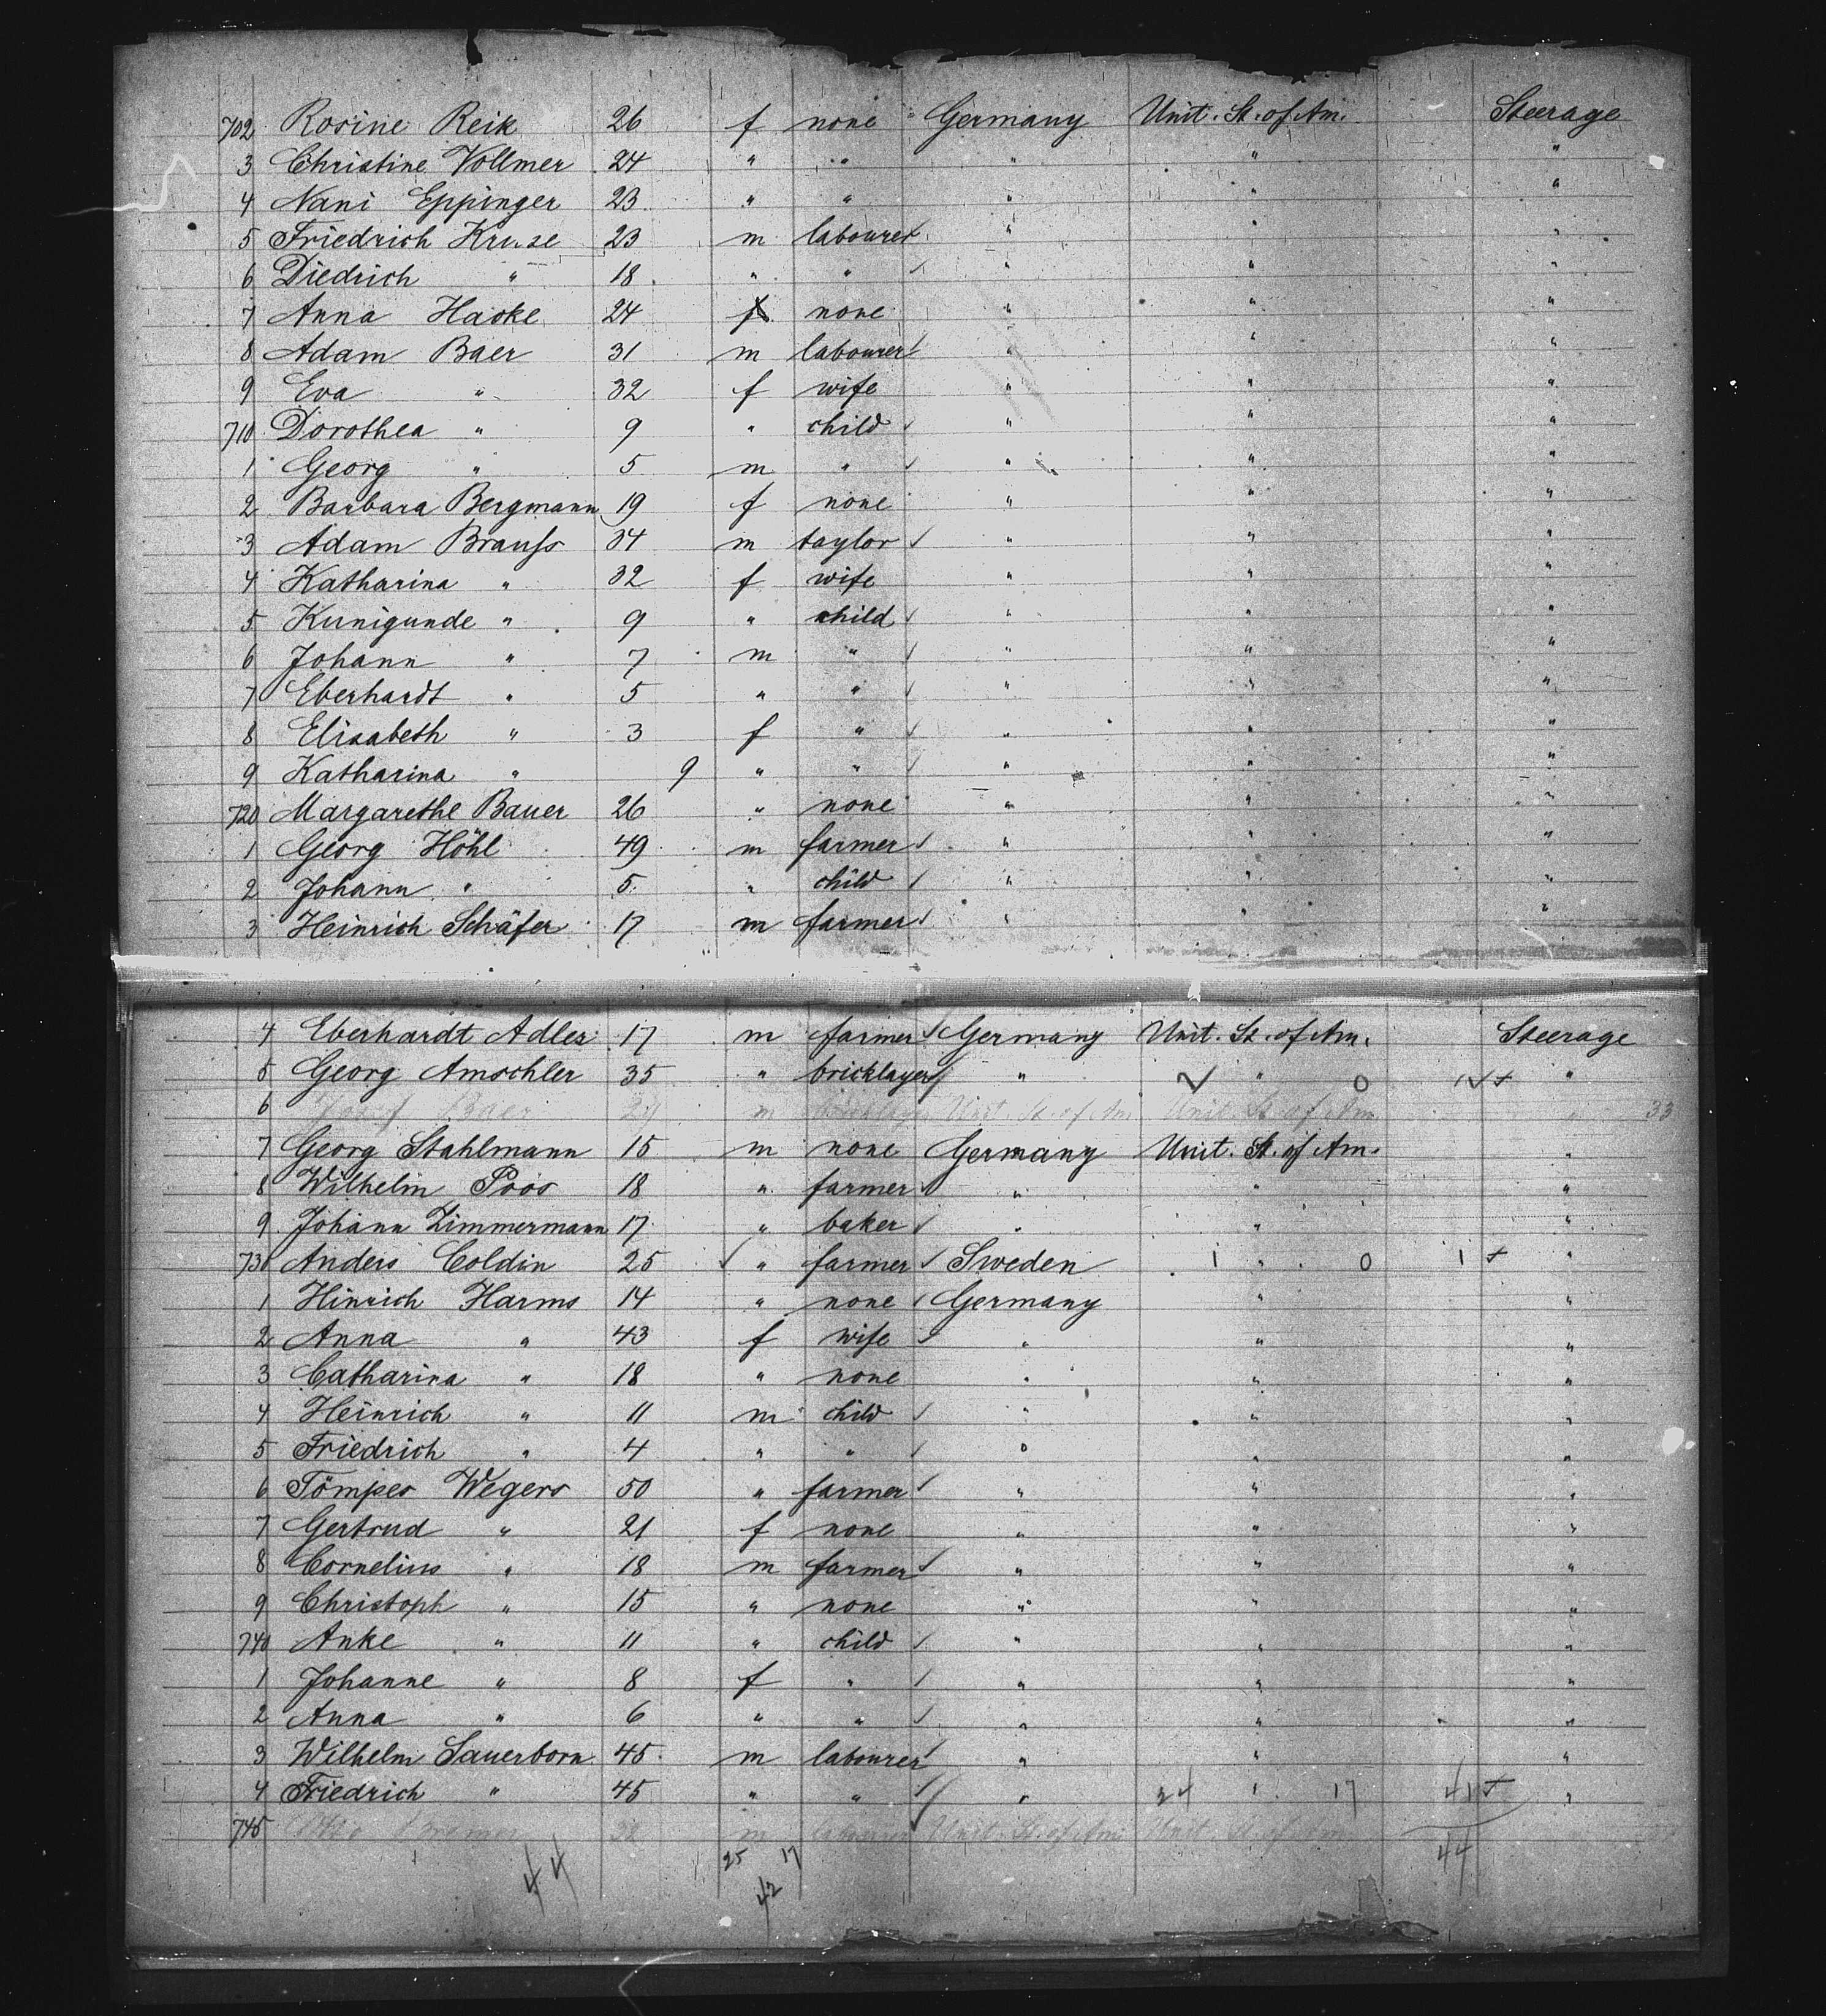 702 Rosine Reik 26 f none Germany Unit. St. of Am. Steerage
3 Christine Vollmer 24 " " " " "
4 Nani Eppinger 23 " " " " "
5 Friedrich Kruse 23 m labourer " " "
6 Diedrich " 18 " " " " "
7 Anna Hacke 24 f none " " "
8 Adam Baer 31 m labourer " " "
9 Eva " 32 f wife " " "
710 Dorothea " 9 " child " " "
1 Georg " 5 m " " " "
2 Barbara Bergmann 19 f none " " "
3 Adam Brauß 34 m taylor " " "
4 Katharina " 32 f wife " " "
5 Kunigunde " 9 " child " " "
6 Johann " 7 m " " " "
7 Eberhardt " 5 " " " " "
8 Elisabeth " 3 f " " " "
9 Katharina " 9 " " " " "
720 Margarethe Bauer 26 " none " " "
1 Georg Höhl 49 m farmer " " "
2 Johann " 5 " child " " "
3 Heinrich Schäfer 17 m farmer " " "
4 Eberhardt Adler 17 m farmer Germany Unit. St. of Am. Steerage
5 Georg Amschler 35 " bricklayer " 2 " 0 "
6 Baer 29 m Unit. St. of Am. Unit. St. of Am. " 33
7 Georg Stahlmann 15 m none Germany Unit. St. of Am. "
8 Wilhelm Poos 18 " farmer " " "
9 Johann Zimmermann 17 " baker " " "
730 Anders Coldin 25 " farmer Sweden 1 " 0 1 + "
1 Hinrich Harms 14 " none Germany " "
2 Anna " 43 f wife " " "
3 Catharina " 18 " none " " "
4 Heinrich " 11 m child " " "
5 Friedrich " 4 " " " " "
6 Tömpes Wegers 50 " farmer " " "
7 Gertrud " 21 f none " " "
8 Cornelius " 18 m farmer " " "
9 Christoph " 15 " none " " "
740 Anke " 11 " child " " "
1 Johanne " 8 f " " " "
2 Anna " 6 " " " " "
3 Wilhelm Sauerborn 45 m labourer " " "
4 Friedrich " 45 " " " 24 " 17 41 + "
745 m labourer Unit. St. of Am. Unit. St. of Am.
44 25 17 44
42